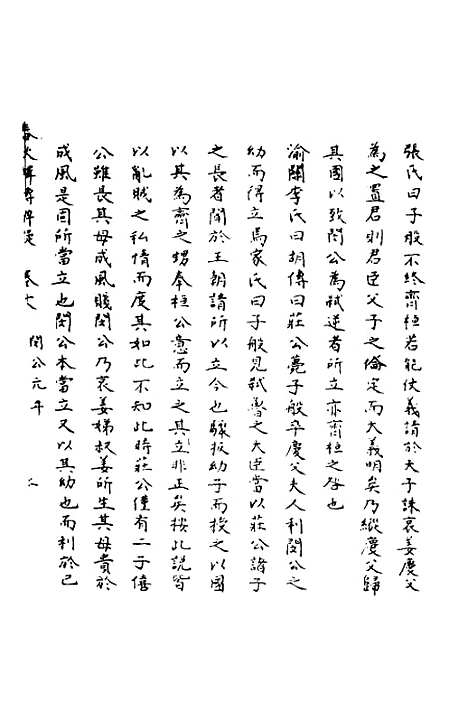 張氏曰子般不終齊桓若能仗義請於天子誅哀姜慶父
為之置君則君臣父子之倫定而大義明矣乃縱慶父歸
其國以致閔公為弒逆者所立亦齊桓之咎也
渝關李氏曰胡傳曰莊公薨子般卒慶父夫人利閔公之
幼而得立焉家氏曰子般見弒魯之大臣當以莊公諸子
之長者聞於王朝請所以立今也驟扳幼子而授之以國
以其為齊之甥奉桓公意而立之其立非正矣按此說皆
以亂賊之私情而度其如此不知此時莊公僅有二子僖
公雖長其母成風賤閔公乃哀姜娣叔姜所生其母貴於
成風是固所當立也閔公本當立又以其幼也而利於己
春秋 卷七 閔公元年